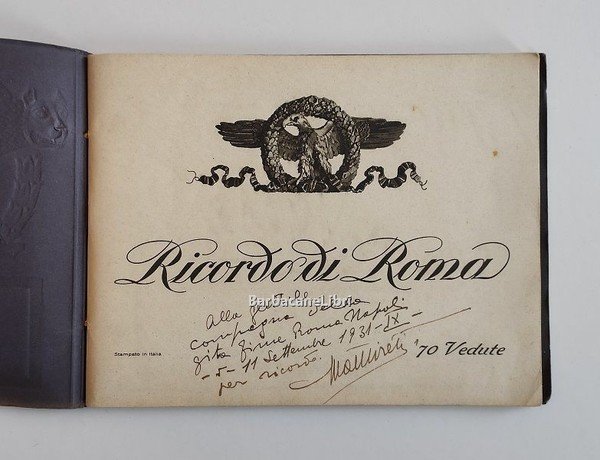 Ricordo di Roma
Alla
BarbacaneLibri
compagna della
gita Roma Napoli
-5-11 Settembre 1931-IX-
per ricordo.
Stampato in Italia
70 Vedute